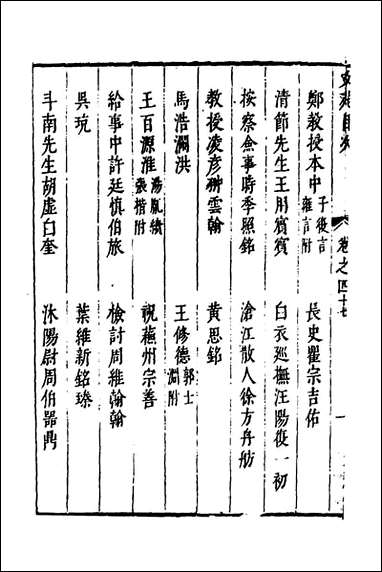 卷之四十七
鄭教授本中 子復言 雍言附 長史瞿宗吉佑
清節先生王用賓賓 白衣廵撫汪陽復一初
按察僉事時季照銘 滄江散人徐方舟舫
教授凌彦翀雲翰 黄思銘
馬浩瀾洪 王修德 郭士淵附
王百源淮 湯胤績 張楷附 祝蘓州宗善
給事中許廷慎伯旅 檢討周維翰翰
吳琓 葉維新銘臻
斗南先生胡虚白奎 沐陽尉周伯器鼎